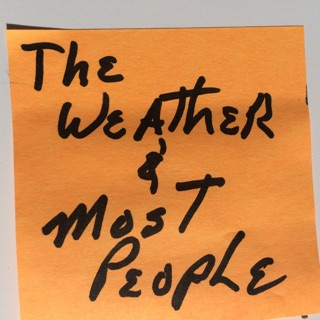 The
WeatheR
&
mosT
PeopLe